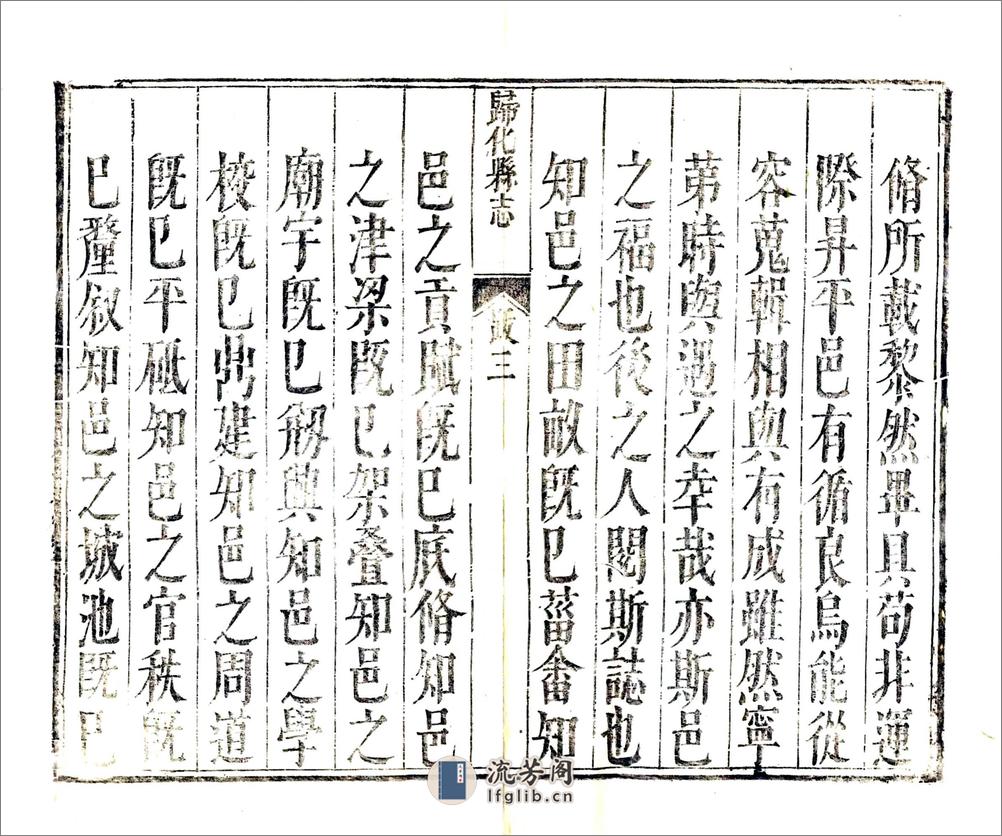 脩所載黎然畢具苟非運
際昇平邑有循良烏能從
容蒐輯相與有成雖然寧
第時與遇之幸哉亦斯邑
之福也後之人閱斯誌也
知邑之田畝既已菑畬知
歸化縣志
跋三
邑之貢賦既已底脩知邑
之津梁既已架叠知邑之
廟宇既已剏興知邑之學
校既已鼎建知邑之周道
既已平砥知邑之官秩既
已釐叙知邑之城池既已
流芳阁
lfglib.cn